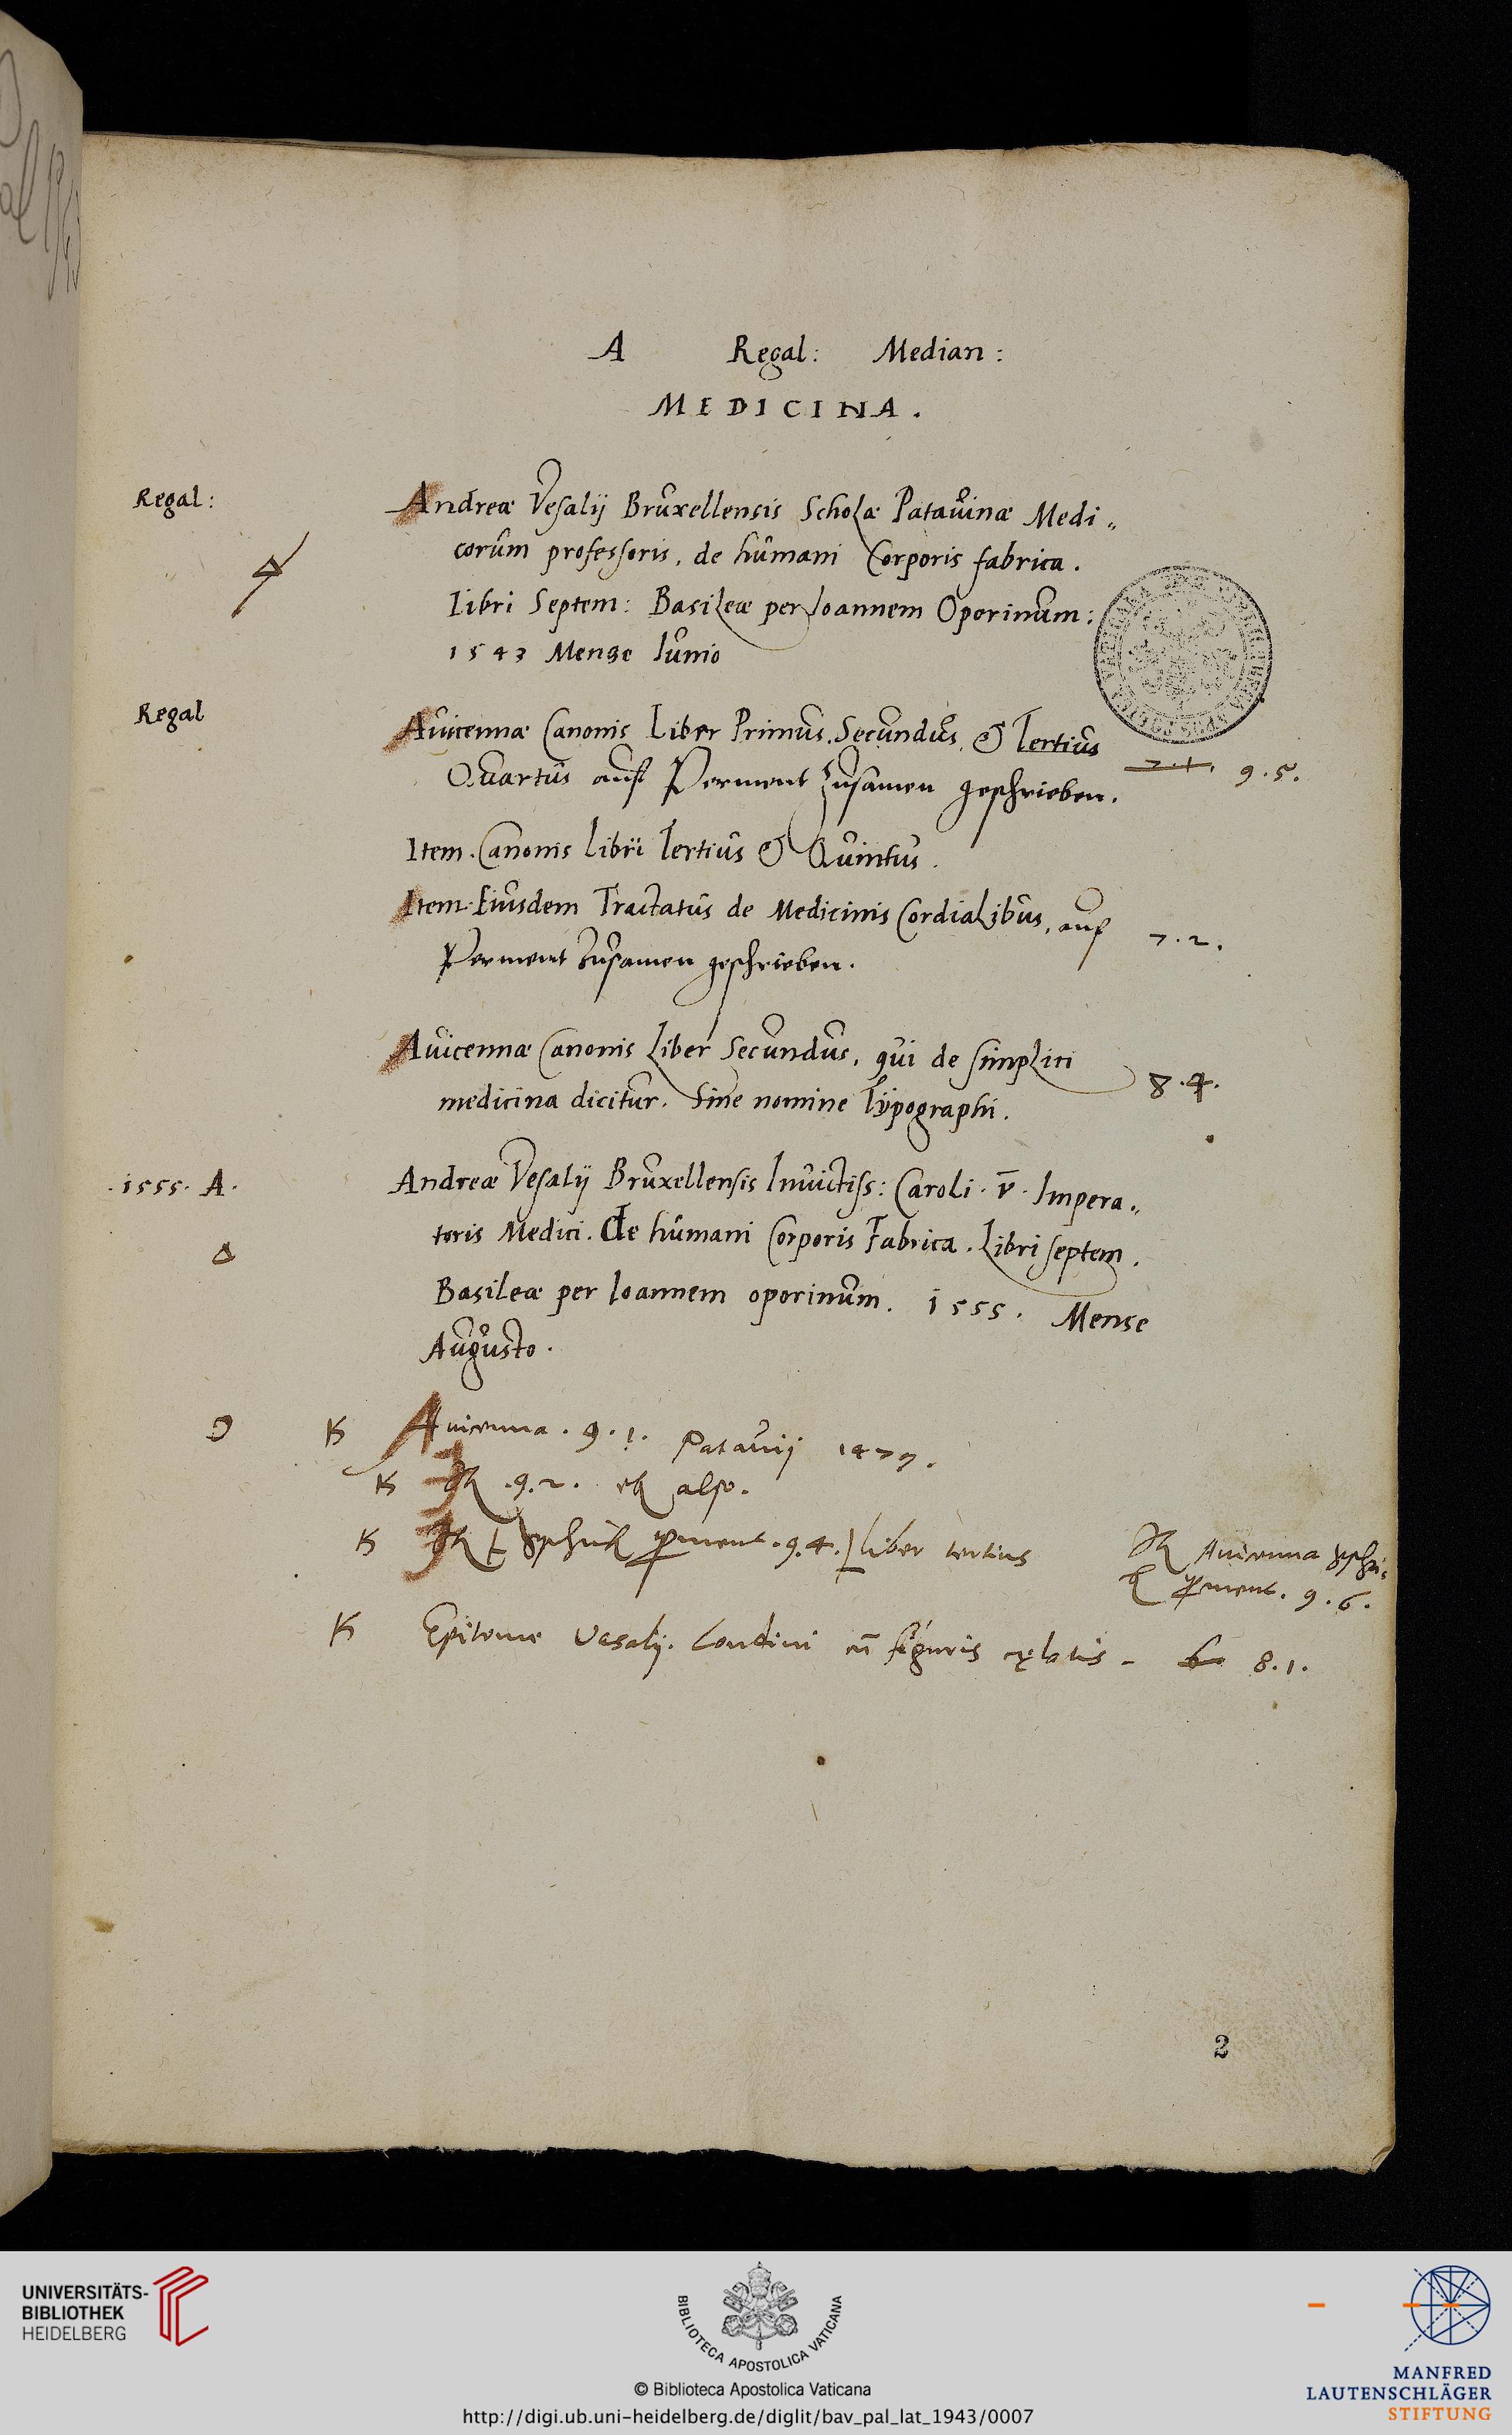 A Regal: Median:
MEDICINA.
Regal:
Andreæ Vesalij Bruxellensis Scholæ Patauinæ Medi„
corum professoris, de humani Corporis fabrica.
Libri Septem: Basileæ per Ioannem Oporinum:
1543 Mense Iunio
Regal
Auicennæ Canonis Liber Primus, Secundus, & Tertius
Quartus auff Perment zusamen geschrieben. 7.1. 9.5.
Item. Canonis Libri Tertius & Quintus.
Item Eiusdem Tractatus de Medicinis Cordialibus, auf 7.2.
Perment zusamen geschrieben.
Auicennæ Canonis Liber Secundus, qui de simplici
medicina dicitur. Sine nomine Typographi. 8.4.
1555. A.
Andreæ Vesalij Bruxellensis Inuictiss: Caroli. V. Impera„
toris Medici. de humani Corporis Fabrica. Libri septem.
Basileæ per Ioannem oporinum. 1555. Mense
Augusto.
K Auicenna. 9.1. Patauij 1477.
K 9.2. also.
K 9.4. liber tertius
Auicenna
perment. 9.6.
K Epitome Vesalij. Londini cū figuris cęlatis. 8.1.
2
UNIVERSITÄTS-
BIBLIOTHEK
HEIDELBERG
BIBLIOTECA APOSTOLICA VATICANA
© Biblioteca Apostolica Vaticana
http://digi.ub.uni-heidelberg.de/diglit/bav_pal_lat_1943/0007
MANFRED
LAUTENSCHLÄGER
STIFTUNG